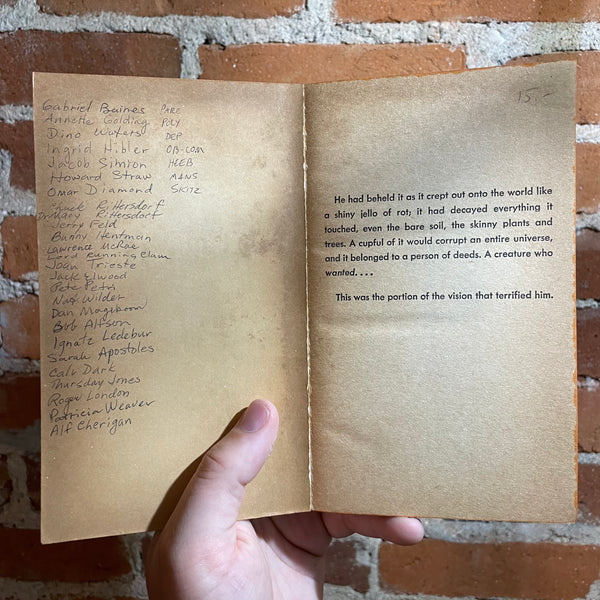 Gabriel Baines PARE
Annette Golding POLY
Dino Wuters DEP
Ingrid Hibler OB-COM
Jacob Simion HEEB
Howard Straw MANS
Omar Diamond SKITZ
Chuck Rittersdorf
Dr Mary Rittersdorf
Jerry Feld
Bunny Hentman
Lawrence McRae
Lord Running Clam
Joan Trieste
Jack Elwood
Pete Petri
Nat Wilder
Dan Mageboom
Bob Alfson
Ignatz Ledebur
Sarah Apostoles
Calv Dark
Thursday Jones
Roger London
Patricia Weaver
Alf Cherigan
15-
He had beheld it as it crept out onto the world like
a shiny jello of rot; it had decayed everything it
touched, even the bare soil, the skinny plants and
trees. A cupful of it would corrupt an entire universe,
and it belonged to a person of deeds. A creature who
wanted. . . .
This was the portion of the vision that terrified him.